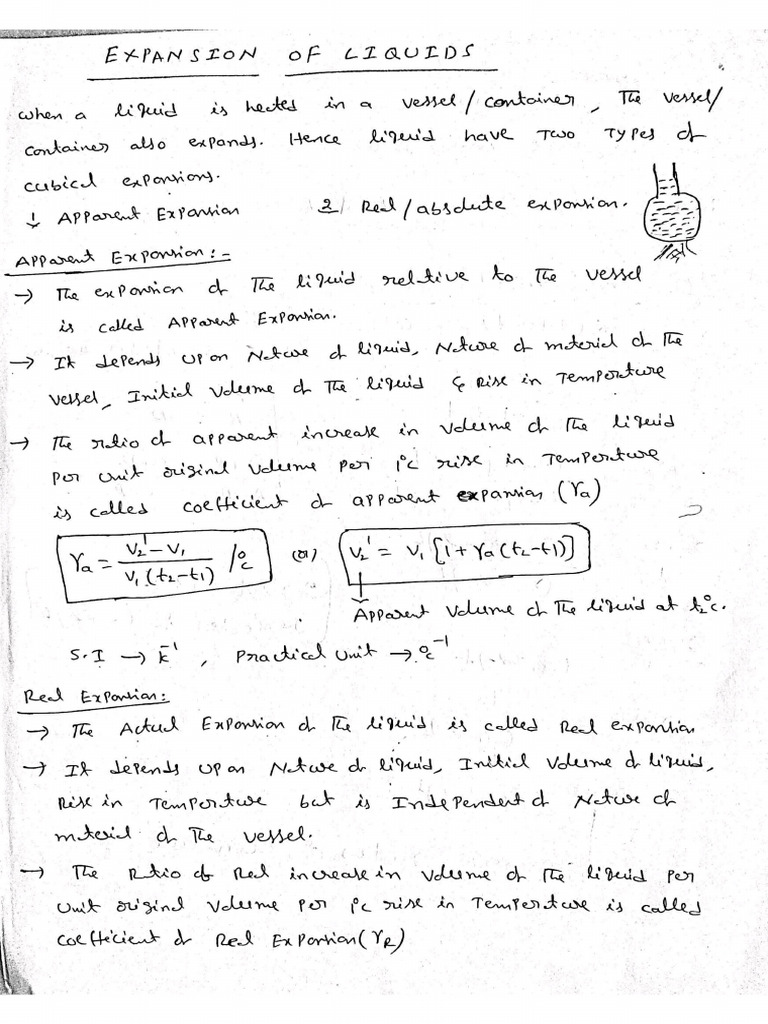 EXPANSION OF LIQUIDS
When a liquid is heated in a vessel/container, The vessel/
container also expands. Hence liquid have Two Types of
cubical expansions.
1) Apparent Expansion 2) Real/absolute expansion.
Apparent Expansion:-
→ The expansion of The liquid relative to The vessel
is called Apparent Expansion.
→ It depends upon Nature of liquid, Nature of material of The
vessel, Initial Volume of The liquid & Rise in Temperature
→ The ratio of apparent increase in volume of The liquid
per unit original volume per 1°c rise in Temperature
is called coefficient of apparent expansion (γa)
γa = V₂' - V₁ / V₁(t₂-t₁) /°c (or) V₂' = V₁[1+γa(t₂-t₁)]
Apparent Volume of The liquid at t₂°c.
S.I → K⁻¹, Practical Unit → °c⁻¹
Real Expansion:
→ The Actual Expansion of The liquid is called Real expansion
→ It depends upon Nature of liquid, Initial Volume of liquid,
Rise in Temperature but is Independent of Nature of
material of The vessel.
→ The Ratio of Real increase in volume of The liquid per
unit original volume per 1°c rise in Temperature is called
coefficient of Real Expansion(γR)